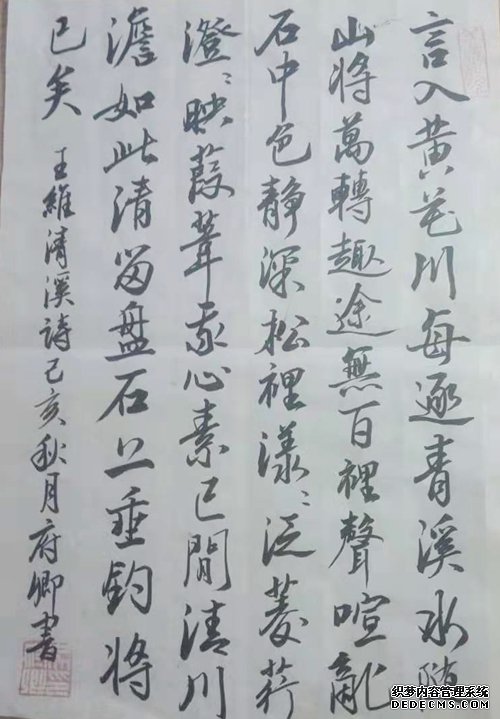 言入黄花川每逐青溪水随
山将萬轉趣途無百裡聲喧亂
石中色静深松裡漾々泛菱荇
澄々映葭葦我心素已閒清川
澹如此清留盤石上垂釣将
已矣 王維清溪詩己亥秋月府卿書
织梦内容管理系统
DEDECMS.COM